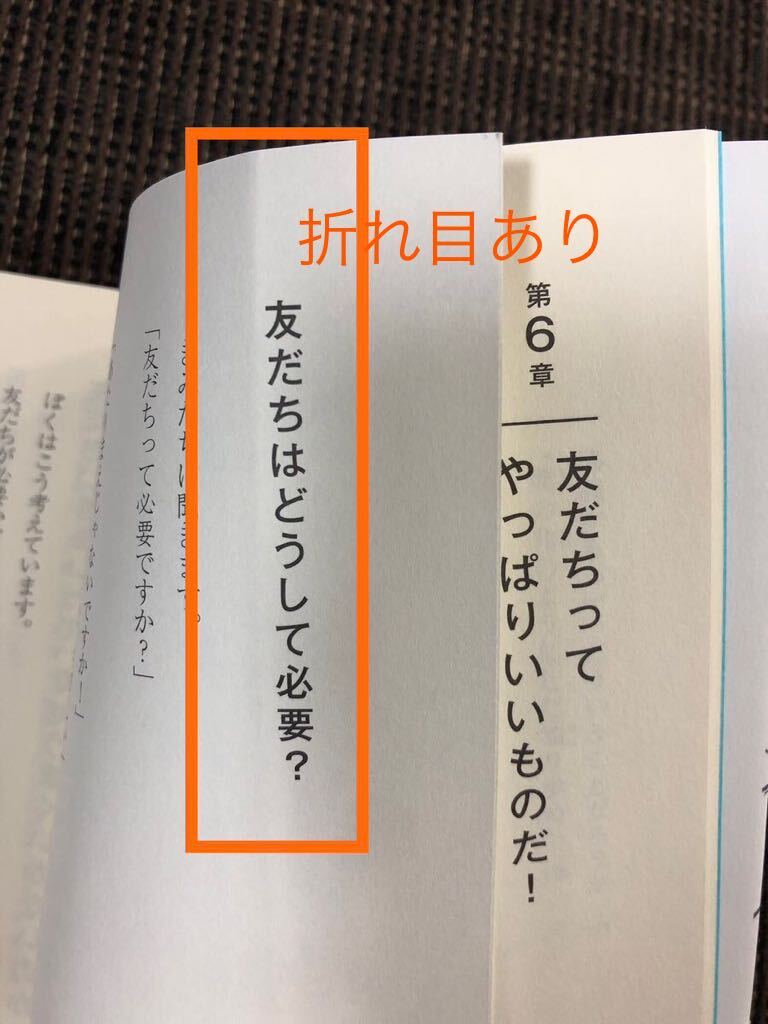 折れ目あり
第6章
友だちって
やっぱりいいものだ！
友だちはどうして必要？
きみたちに聞きます。
「友だちって必要ですか？」
ぼくはこう考えています。